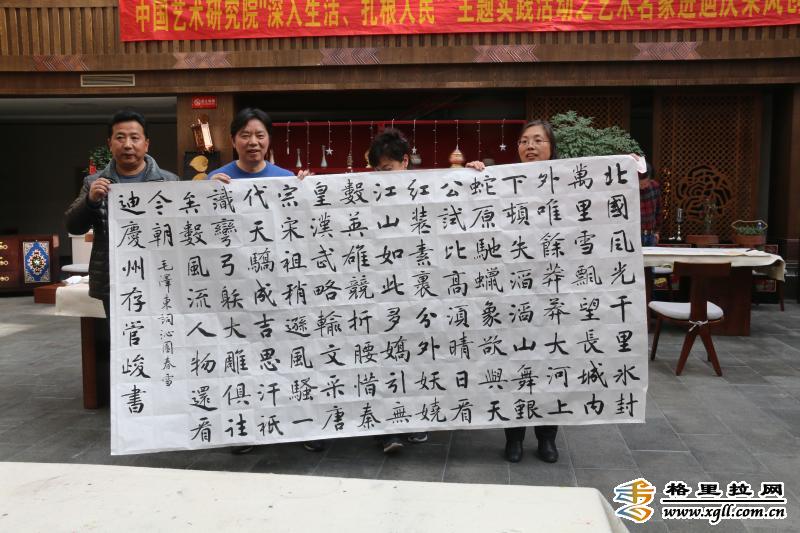 中国艺术研究院"深入生活、扎根人民" 主题实践活动之艺术名家进迪庆采风创
北國風光千里冰封
萬里雪飄望長城內
外唯餘莽莽大河上
下頓失滔滔山舞銀
蛇原馳蠟象欲與天
公試比高須晴日看
紅裝素裹分外妖嬈
江山如此多嬌引無
數英雄競折腰惜秦
皇漢武略輸文采唐
宗宋祖稍遜風騷一
代天驕成吉思汗祇
識彎弓射大雕俱往
矣數風流人物還看
今朝 毛澤東詞沁園春雪
迪慶州存管峻書
格里拉网
www.xgll.com.cn